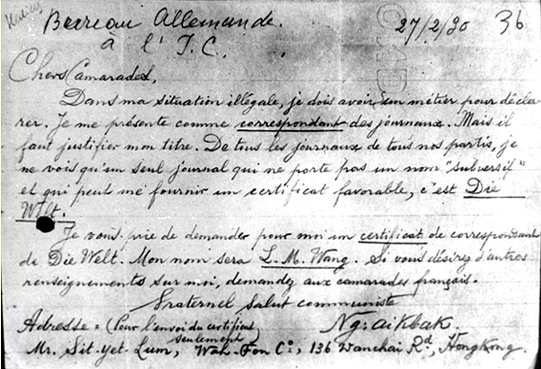 Bureau Allemande. 27/2/30 36
à l'I.C.
Chers Camarades,
Dans ma situation illégale, je dois avoir un métier pour décla-
rer. Je me présente comme correspondant des journaux. Mais il
faut justifier mon titre. De tous les journaux de tous nos partis, je
ne vois qu'un seul journal qui me porte pas un nom "subversif"
et qui peut me fournir un certificat favorable, c'est Die
Welt.
Je vous prie de demander pour moi un certificat de correspondant
de Die Welt. Mon nom sera L. M. Wang. Si vous désirez d'autres
renseignements sur moi, demandez aux camarades français.
Fraternel salut communiste
Adresse = (Pour l'envoi du certificat Ng: aikbak.
seulement)
Mr. Sit-yet-Lum, Wah-Fon Cº, 136 Wanchai Rd, Hongkong.